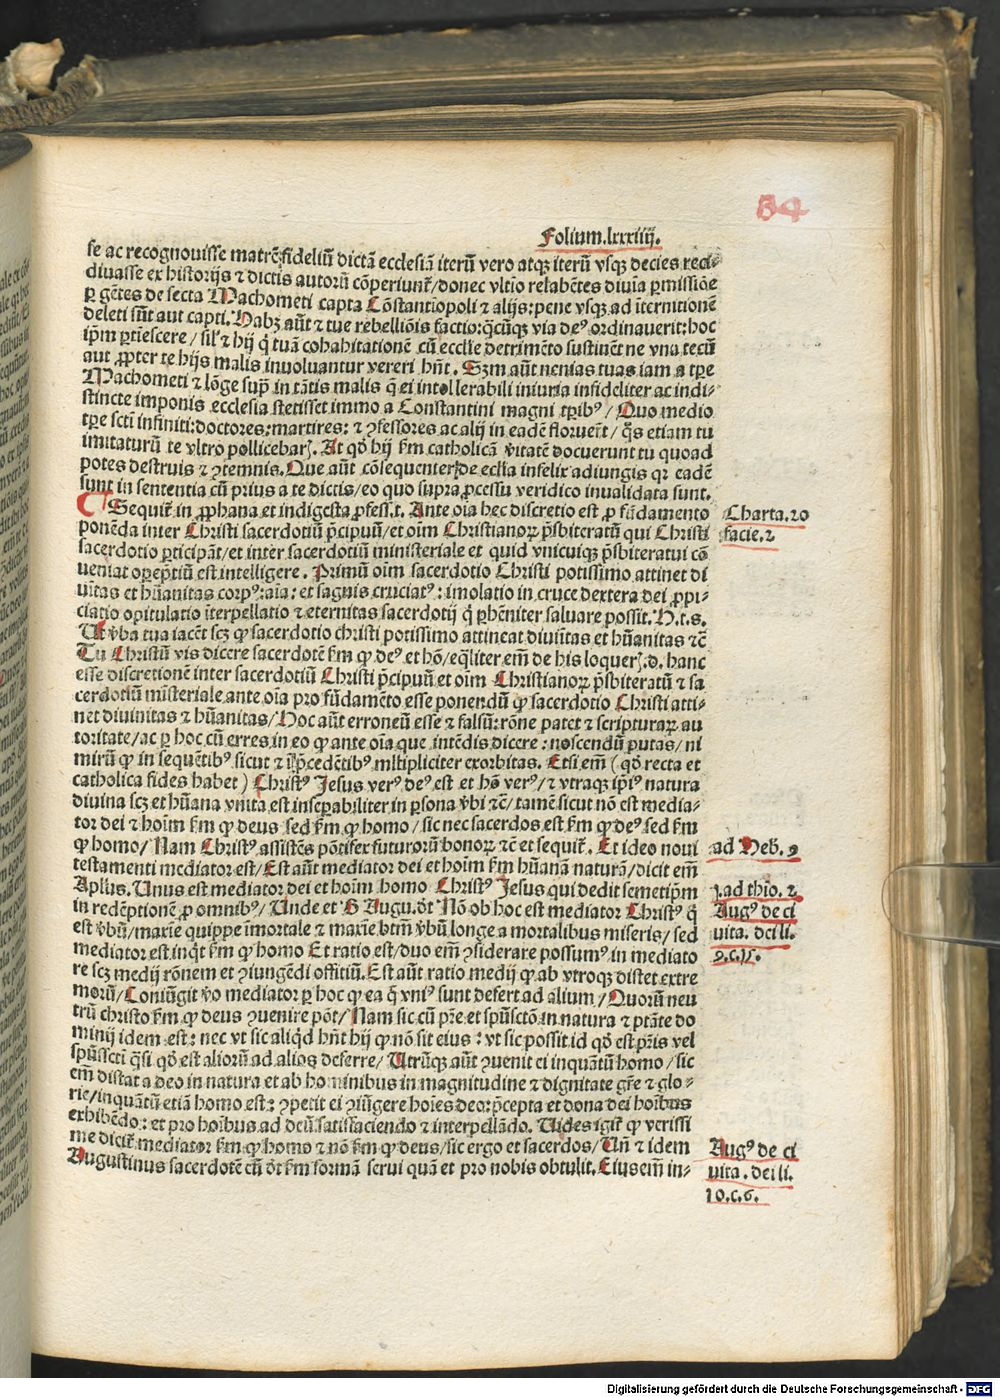 84
Folium.lxxxiiij.
se ac recognouisse matrē fideliū dictā ecclesiā iterū vero atqꝫ iterū vsqꝫ decies reci⸗
diuasse ex historijs ⁊ dictis autorū cōperiunt̄/donec vltīo relabētes diuīa ꝑmissiōe
ꝑ gētes de secta Machometi capta Cōstantiopoli ⁊ alijs:pene vsqꝫ ad īternitionē
deleti sūt aut capti. Habꝫ aūt ⁊ tue rebelliōis factio:q̄cūqꝫ via deꝰ ordinauerit:hoc
ip̄m ꝑtiescere/sil'⁊ hij q̄ tuā cohabitationē cū ecclie detrimēto sustinēt ne vna tecū
aut ꝓpter te hijs malis inuoluantur vereri hn̄t. Sꝫm aūt nenias tuas iam a tꝑe
Machometi ⁊ lōge supͣ in tātis malis q̄ ei intollerabili iniuria infideliter ac indi⸗
stincte imponis ecclesia stetisset immo a Constantini magni tꝑibꝰ/Quo medio
tꝑe scti infiniti:doctores:martires: ⁊ ꝯfessores ac alij in eadē floruēt/q̄s etiam tu
imitaturū te vltro pollicebarꝭ. At qd̄ hij ẜm catholicā v̄itatē docuerunt tu quoad
potes destruis ⁊ ꝯtemnis. Que aūt cōsequenter de ecclīa infelix adiungis qꝛ eadē
sunt in sententia cū prius a te dictis/eo quo supra ꝓcessu veridico inualidata sunt.
¶ Sequit̄ in ꝓphana et indigesta ꝓfess.t. Ante oīa hec discretio est ꝓ fūdamento
ponēda inter Christi sacerdotiū p̄cipuū/et oīm Christianoꝝ p̄sbiteratū qui Christi
sacerdotio ꝑticipāt/et inter sacerdotiū ministeriale et quid vnicuiqꝫ p̄sbiteratui cō
ueniat oꝑep̄tiū est intelligere. Primū oīm sacerdotio Christi potissimo attinet di
uītas et hūanitas corpꝰ:aīa: et sāguis cruciatꝰ: imolatio in cruce dextera dei ꝓpi⸗
ciatio opitulatio īterpellatio ⁊ eternitas sacerdotij q̄ ꝑhēniter saluare possit. H.t.s.
Ut v̄ba tua iacēt scꝫ ꝙ sacerdotio christi potissimo attineat diuītas et hūanitas ⁊c̄
Tu Christū vis dicere sacerdotē ẜm ꝙ deꝰ et hō/eq̄liter em̄ de his loquerꝭ.d. hanc
esse discretionē inter sacerdotiū Christi p̄cipuū et oīm Christianoꝝ p̄sbiteratū ⁊ sa
cerdotiū mīsteriale ante oīa pro fūdamēto esse ponendū ꝙ sacerdotio Christi atti⸗
net diuinitas ⁊ hūanitas/Hoc aūt erroneū esse ⁊ falsū:rōne patet ⁊ scripturaꝝ au
toritate/ac ꝑ hoc cū erres in eo ꝙ ante oīa que intēdis dicere : noscendū putas/ni
mirū ꝙ in sequētibꝰ sicut ⁊ ī p̄cedētibꝰ mltipliciter exorbitas. Etsi em̄ (qd̄ recta et
catholica fides habet) Christꝰ Jesus verꝰ deꝰ est et hō verꝰ/⁊ vtraqꝫ ip̄iꝰ natura
diuina scꝫ et hūana vnita est inseꝑabiliter in ꝑsona v̄bi ⁊c̄/tamē sicut nō est media⸗
tor dei ⁊ hoīm ẜm ꝙ deus sed ẜm ꝙ homo/sic nec sacerdos est ẜm ꝙ deꝰ sed ẜm
ꝙ homo/Nam Christꝰ assistēs pōtifex futuroꝝ bonoꝝ ⁊c̄ et sequit̄. Et ideo noui
testamenti mediator est/Est aūt mediator dei et hoīm ẜm hūanā naturā/dicit em̄
Apl'us. Unus est mediator dei et hoīm homo Christꝰ Jesus qui dedit semetip̄m
in redēptionē ꝓ omnibꝰ/Unde et B Augu. dt̄ Nō ob hoc est mediator Christꝰ q̄
est v̄bū/maxīe quippe īmortale ⁊ maxīe btm̄ v̄bū longe a mortalibus miseris/sed
mediator est inq̄t ẜm ꝙ homo Et ratio est/duo em̄ ꝯsiderare possumꝰ in mediato
re scꝫ medij rōnem et ꝯiungēdi offitiū. Est aūt ratio medij ꝙ ab vtroqꝫ distet extre
morū/Coniūgit v̄o mediator ꝑ hoc ꝙ ea q̄ vniꝰ sunt defert ad alium/Quorū neu
trū christo ẜm ꝙ deus ꝯuenire pōt/Nam sic cū pr̄e et spūsctō in natura ⁊ ptāte do
minij idem est: nec vt sic aliq̄d hn̄t hij ꝙ nō sit eius : vt sic possit id qd̄ est pr̄is vel
spūsscti q̄si qd̄ est aliorū ad alios deferre/Utrūqꝫ aūt ꝯuenit ei inquātū homo/sic
em̄ distat a deo in natura et ab hominibus in magnitudine ⁊ dignitate gr̄e ⁊ glo⸗
rie/inquātū etiā homo est: ꝯpetit ei ꝯiūgere hoīes deo:p̄cepta et dona dei hoībus
exhibēdo: et pro hoībus ad deū satisfaciendo ⁊ interpellādo. Uides igit̄ ꝙ verissi
me dicit̄ mediator ẜm ꝙ homo ⁊ nō ẜm ꝙ deus/sic ergo et sacerdos/Uñ ⁊ idem
Augustinus sacerdotē cū dt̄ ẜm formā serui quā et pro nobis obtulit. Eiusem̄ in⸗
Charta.20
facie.2
ad Heb̄. 9
j.ad thio. 2.
Augꝰ de ci
uita. dei li.
9.c.15.
Augꝰ de ci
uita. dei li.
10.c.6.
Digitalisierung gefördert durch die Deutsche Forschungsgemeinschaft - DFG